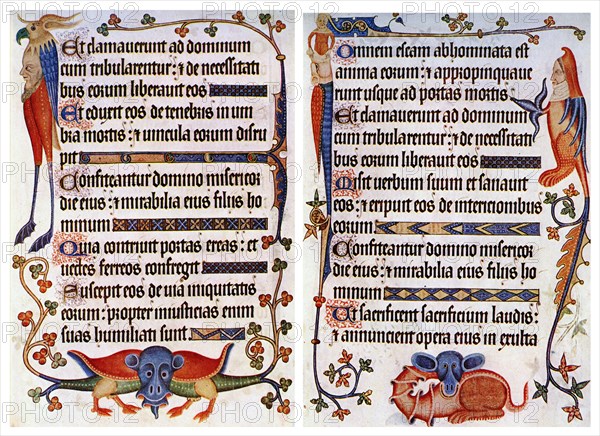 Et clamauerunt ad dominum
cum tribularentur: & de necessitati
bus eorum liberauit eos
Et eduxit eos de tenebris in um
bra mortis: & uincula eorum disru
pit
Confiteantur domino misericor
die eius: & mirabilia eius filiis ho
minum
Quia contriuit portas ereas: et
uectes ferreos confregit
Suscepit eos de uia iniquitatis
eorum: propter iniusticias enim
suas humiliati sunt
Omnem escam abhominata est
anima eorum: & appropinquaue
runt usque ad portas mortis
Et clamauerunt ad dominum
cum tribularentur: & de necessitati
bus eorum liberauit eos
Misit uerbum suum et sanauit
eos: & eripuit eos de intericionibus
eorum
Confiteantur domino misericor
die eius: & mirabilia eius filiis ho
minum
Et sacrificent sacrificium laudis:
& annuncient opera eius in exulta